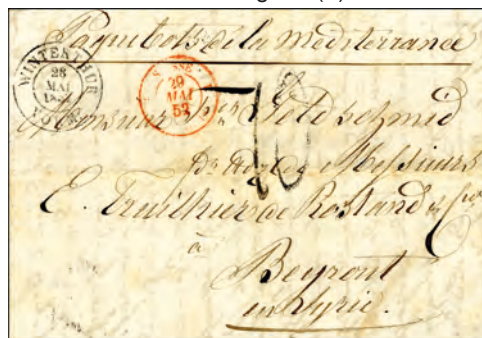 Paquebots de la Mediterranée
WINTERTHUR
28
MAI
NOUV
SUISSE
29
MAI
52
Monsieur Goldschmid
10
Messieurs
E. Truithier de Rostand & Cie
à
Beyrout
en Syrie.